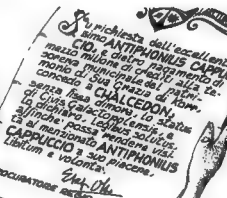 Su richiesta dell'excellen
simo ANTIPHONIUS CAPPU
CIO, e dietro pagamento di
mezzo milione di crediti alla te-
soreria municipale del patri-
monio di Sua Grazia di Korr,
concedo a CHALCEDON,
senza fissa dimora, lo status
di Civis Galactopolensis, e
lo dichiaro. Lectibus solutus,
affinché possa rendere visi-
ta al menzionato ANTIPHONIUS
CAPPUCCIO a suo piacere,
libitum e volontà.
PROCURATORE